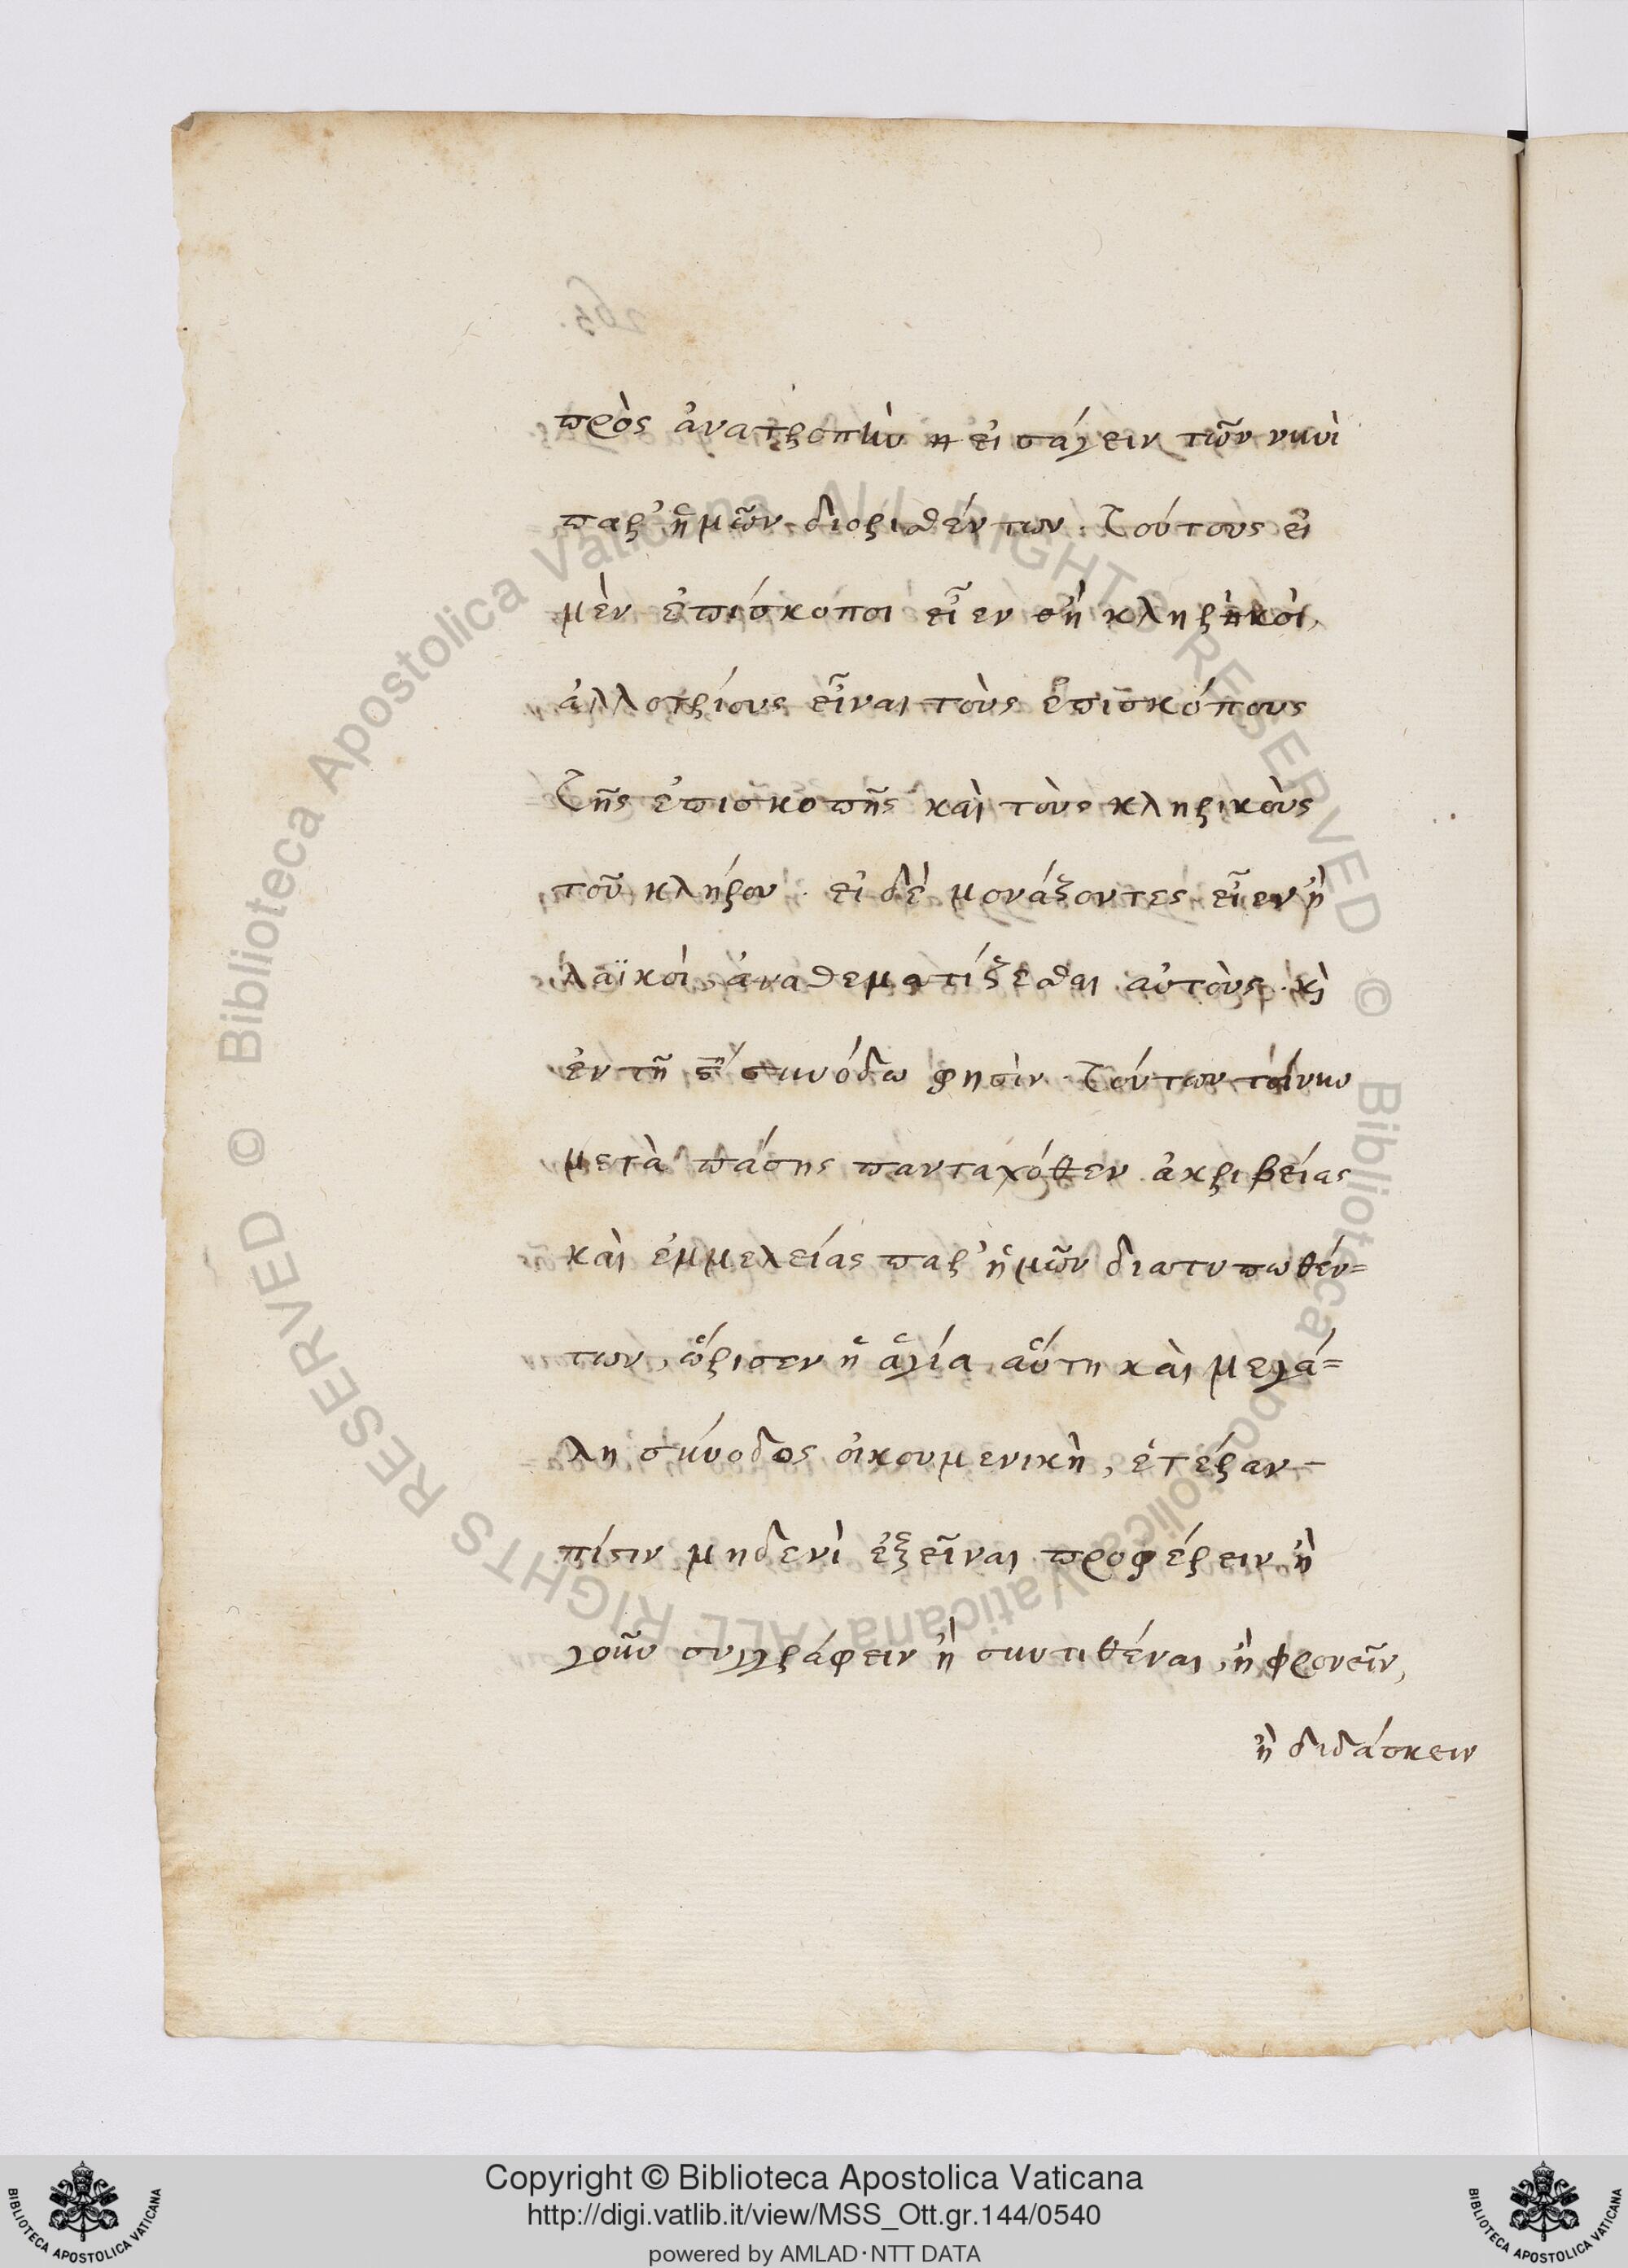 πρὸς ἀνατροπὴν εἰσάγειν τῶν νυνὶ
παρ' ἡμῶν διορισθέντων. τούτους εἰ
μὲν ἐπίσκοποι εἶεν ἢ κληρικοὶ,
ἀλλοτρίους εἶναι τοὺς ἐπισκόπους
τῆς ἐπισκοπῆς καὶ τοὺς κληρικοὺς
τοῦ κλήρου. εἰ δὲ μονάζοντες εἶεν ἢ
λαϊκοὶ, ἀναθεματίζεσθαι αὐτοὺς. κὶ
ἐν τῆ ϛ' συνόδω φησὶν. τούτων τοίνυν
μετὰ πάσης πανταχόθεν ἀκριβείας
καὶ ἐμμελείας παρ' ἡμῶν διατυπωθέν=
των, ὥρισεν ἡ ἁγία αὕτη καὶ μεγά=
λη σύνοδος οἰκουμενικὴ, ἑτέραν-
πίστιν μηδενὶ ἐξεῖναι προφέρειν ἢ
γοῦν συγγράφειν ἢ συντιθέναι, ἢ φρονεῖν,
ἢ διδάσκειν
263.
© Biblioteca Apostolica Vaticana ALL RIGHTS RESERVED © Biblioteca Apostolica Vaticana ALL RIGHTS RESERVED
BIBLIOTECA APOSTOLICA VATICANA
Copyright © Biblioteca Apostolica Vaticana
http://digi.vatlib.it/view/MSS_Ott.gr.144/0540
powered by AMLAD·NTT DATA
BIBLIOTECA APOSTOLICA VATICANA